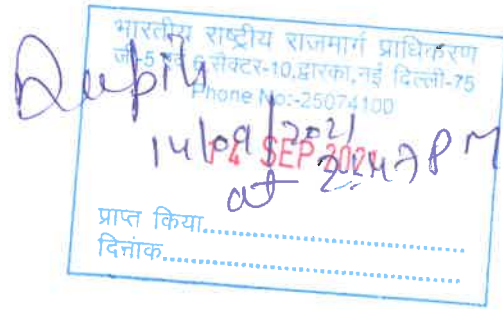 भारतीय राष्ट्रीय राजमार्ग प्राधिकरण
जी-5 एवं 6 सेक्टर-10,द्वारका,नई दिल्ली-75
Phone No:-25074100
14/09/2021
14 SEP 2021
at
प्राप्त किया
दिनांक